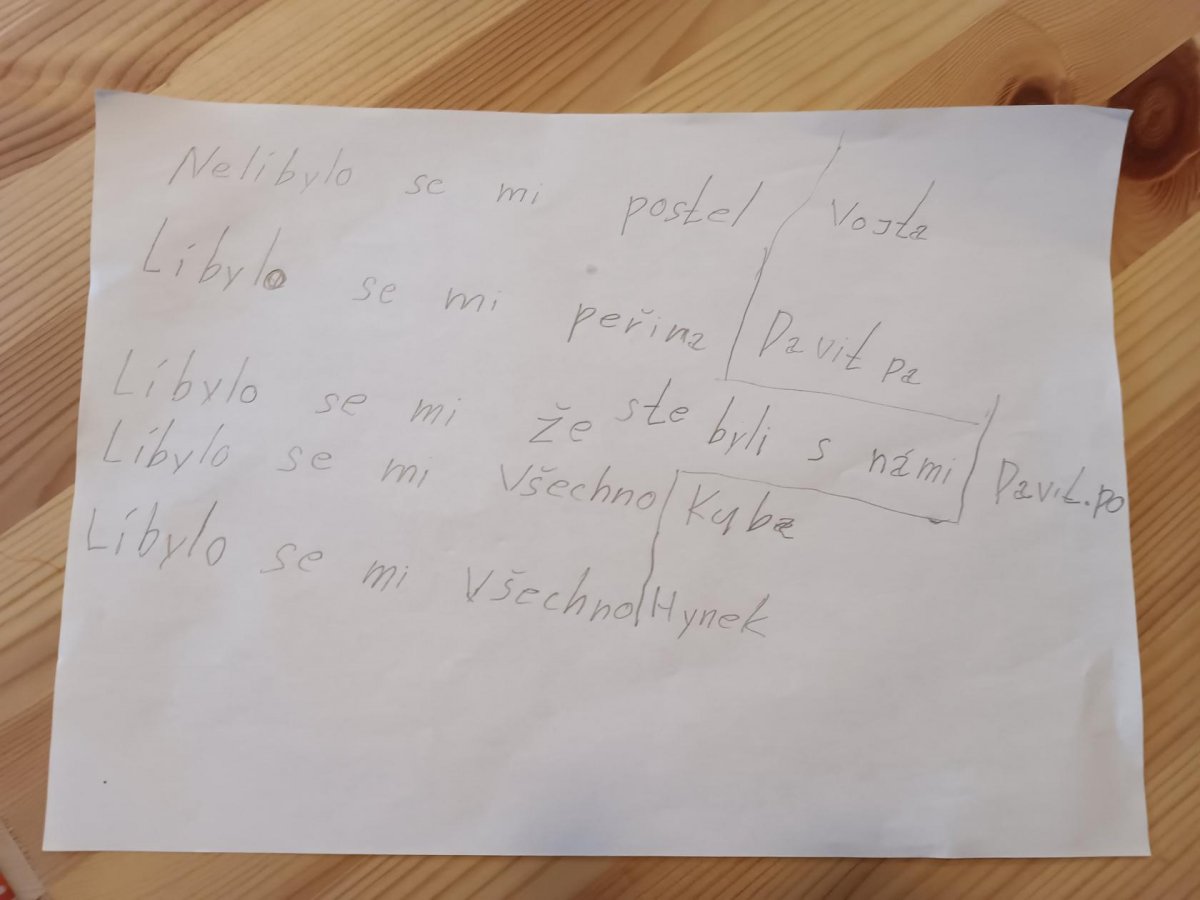 Nelíbylo se mi postel Vojta
Líbylo se mi peřina Davit pa
Líbylo se mi že ste byli s námi Davit.po
Líbylo se mi Všechno Kuba
Líbylo se mi Všechno Hynek